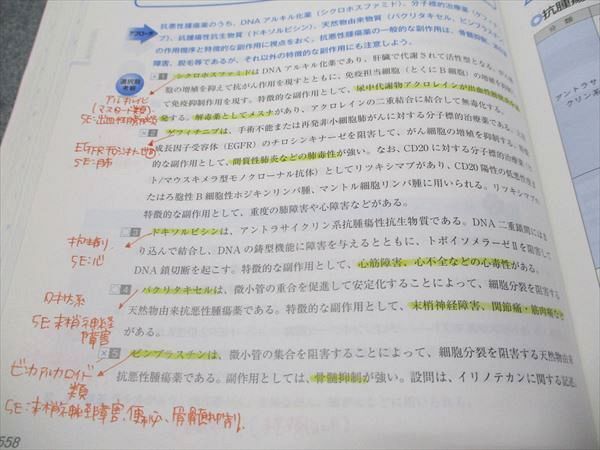 抗悪性腫瘍薬のうち、DNAアルキル化薬(シクロホスファミド)、分子標的治療薬(ゲフィ
アプローチ
ブ)、抗腫瘍性抗生物質(ドキソルビシン)、天然物由来物質(パクリタキセル、ビンブラスチ
の作用機序と特徴的な副作用に視点をおく。抗悪性腫瘍薬の一般的な副作用は、骨髄抑制、消
障害、脱毛等であるが、それ以外の特徴的な副作用にも注意しよう。
選択肢
考察
1 シクロホスファミドはDNAアルキル化薬であり、肝臓で代謝されて活性型となり、がん
胞の増殖を抑えて抗がん作用を現すとともに、免疫担当細胞(とくにB細胞)の増殖を抑制
て免疫抑制作用を現す。特徴的な副作用として、尿中代謝物アクロレインが出血性膀胱炎を
発する。解毒薬としてメスナがあり、アクロレインの二重結合に結合して無毒化する。
2 ゲフィチニブは、手術不能または再発非小細胞肺がんに対する分子標的治療薬である。
成長因子受容体(EGFR)のチロシンキナーゼを阻害して、がん細胞の増殖を抑制する。特
的な副作用として、間質性肺炎などの肺毒性が強い。なお、CD20に対する分子標的治療薬(
ト/マウスキメラ型モノクローナル抗体)としてリツキシマブがあり、CD20陽性の低悪性度ま
たはろ胞性B細胞性ホジキンリンパ腫、マントル細胞リンパ腫に用いられる。リツキシマブ
特徴的な副作用として、重度の肺障害や心障害などがある。
3 ドキソルビシンは、アントラサイクリン系抗腫瘍性抗生物質である。DNA二重鎖間には
り込んで結合し、DNAの鋳型機能に障害を与えるとともに、トポイソメラーゼⅡを阻害して
DNA鎖切断を起こす。特徴的な副作用として、心筋障害、心不全などの心毒性がある。
4 パクリタキセルは、微小管の重合を促進して安定化することによって、細胞分裂を阻害する
天然物由来抗悪性腫瘍薬である。特徴的な副作用として、末梢神経障害、関節痛・筋肉痛など
がある。
5 ビンブラスチンは、微小管の集合を阻害することによって、細胞分裂を阻害する天然物由来
抗悪性腫瘍薬である。副作用としては、骨髄抑制が強い。設問は、イリノテカンに関する記述
アルキル化
(マスタード類)
SE:出血性膀胱炎
EGFRチロシンキナーゼ
SE:肺
SE:心
タキサン系
SE:末梢神経
障害
ビンカアルカロイド
類
SE:末梢神経障害、便秘、骨髄抑制。
558
抗腫瘍
分類
アントラサイ
クリン系